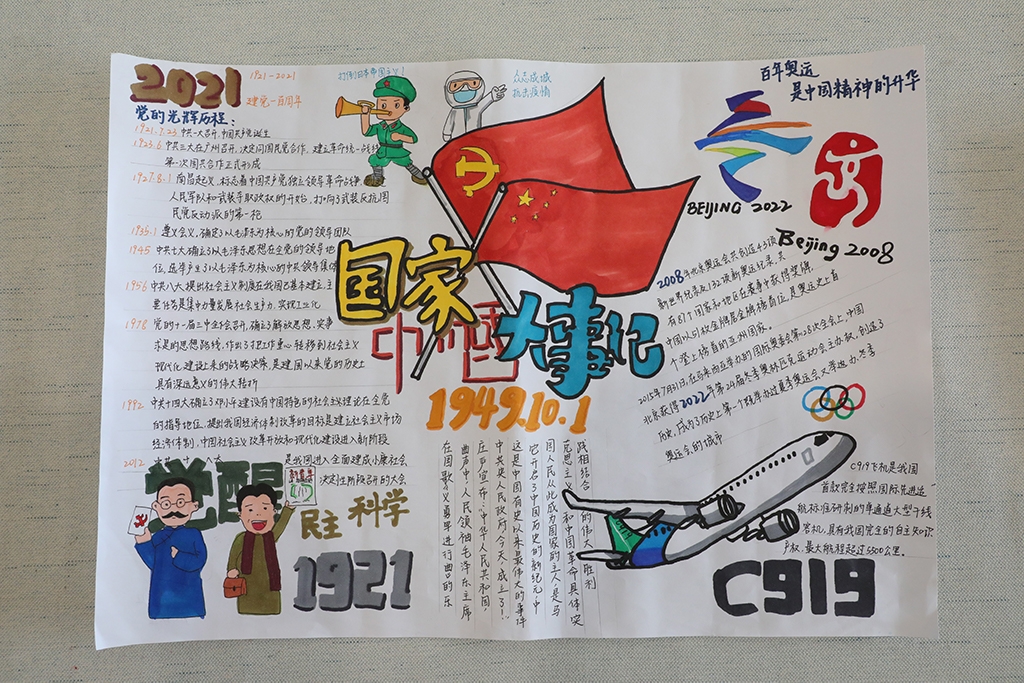 2021
1921-2021
建党一百周年
党的光辉历程：
1921.7.23 中共一大召开,中国共产党诞生
1923.6 中共三大在广州召开,决定同国民党合作,建立革命统一战线
第一次国共合作正式形成
1927.8.1 南昌起义,标志着中国共产党独立领导革命战争
人民军队和武装夺取政权的开始,打响了武装反抗国
民党反动派的第一枪
1935.1 遵义会议,确定了以毛泽东为核心的党的领导团队
1945 中共七大确立了以毛泽东思想在全党的领导地
位,选举产生了以毛泽东为核心的中共领导集体
1956 中共八大提出社会主义制度在我国已基本建立,主
要任务是集中力量发展社会生产力,实现工业化
1978 党的十一届三中全会召开,确立了解放思想,实事
求是的思想路线,作出了把工作重心转移到社会主义
现代化建设上来的战略决策,是建国以来党的历史上
具有深远意义的伟大转折
1992 中共十四大确立了邓小平建设有中国特色的社会主义理论在全党
的指导地位,提出我国经济体制改革的目标是建立社会主义市场
经济体制,中国社会主义改革开放和现代化建设进入新阶段
2012
是我国进入全面建成小康社会
决定性阶段召开的大会
觉醒
民主 科学
1921
打倒日本帝国主义！
众志成城
抗击疫情
国家
中国
大事记
1949.10.1
践相结合的伟大胜利
克思主义和中国革命具体实
国人民从此成为国家的主人,是马
它开启了中国历史的新纪元,中
这是中国有史以来最伟大的事件
中共央人民政府今天成立了!
庄严宣布:中华人民共和国,
曲声中,人民领袖毛泽东主席
在国歌《义勇军进行曲》的乐
百年奥运
是中国精神的升华
BEIJING 2022
Beijing 2008
2008年北京奥运会共创造43项
新世界纪录及132项新奥运纪录,共
有87个国家和地区在赛事中获得奖牌,
中国以51枚金牌居金牌榜首位,是奥运史上首
个登上榜首的亚洲国家。
2015年7月31日,在吉隆坡举办的国际奥委会第128次全会上,中国
北京获得2022年第24届冬季奥林匹克运动会主办权,创造了
历史,成为了历史上第一个既举办过夏季奥运会又举办冬季
奥运会的城市
C919飞机是我国
首款完全按照国际先进适
航标准研制的单通道大型干线
客机,具有我国完全的自主知识
产权,最大航程超过5500公里。
C919